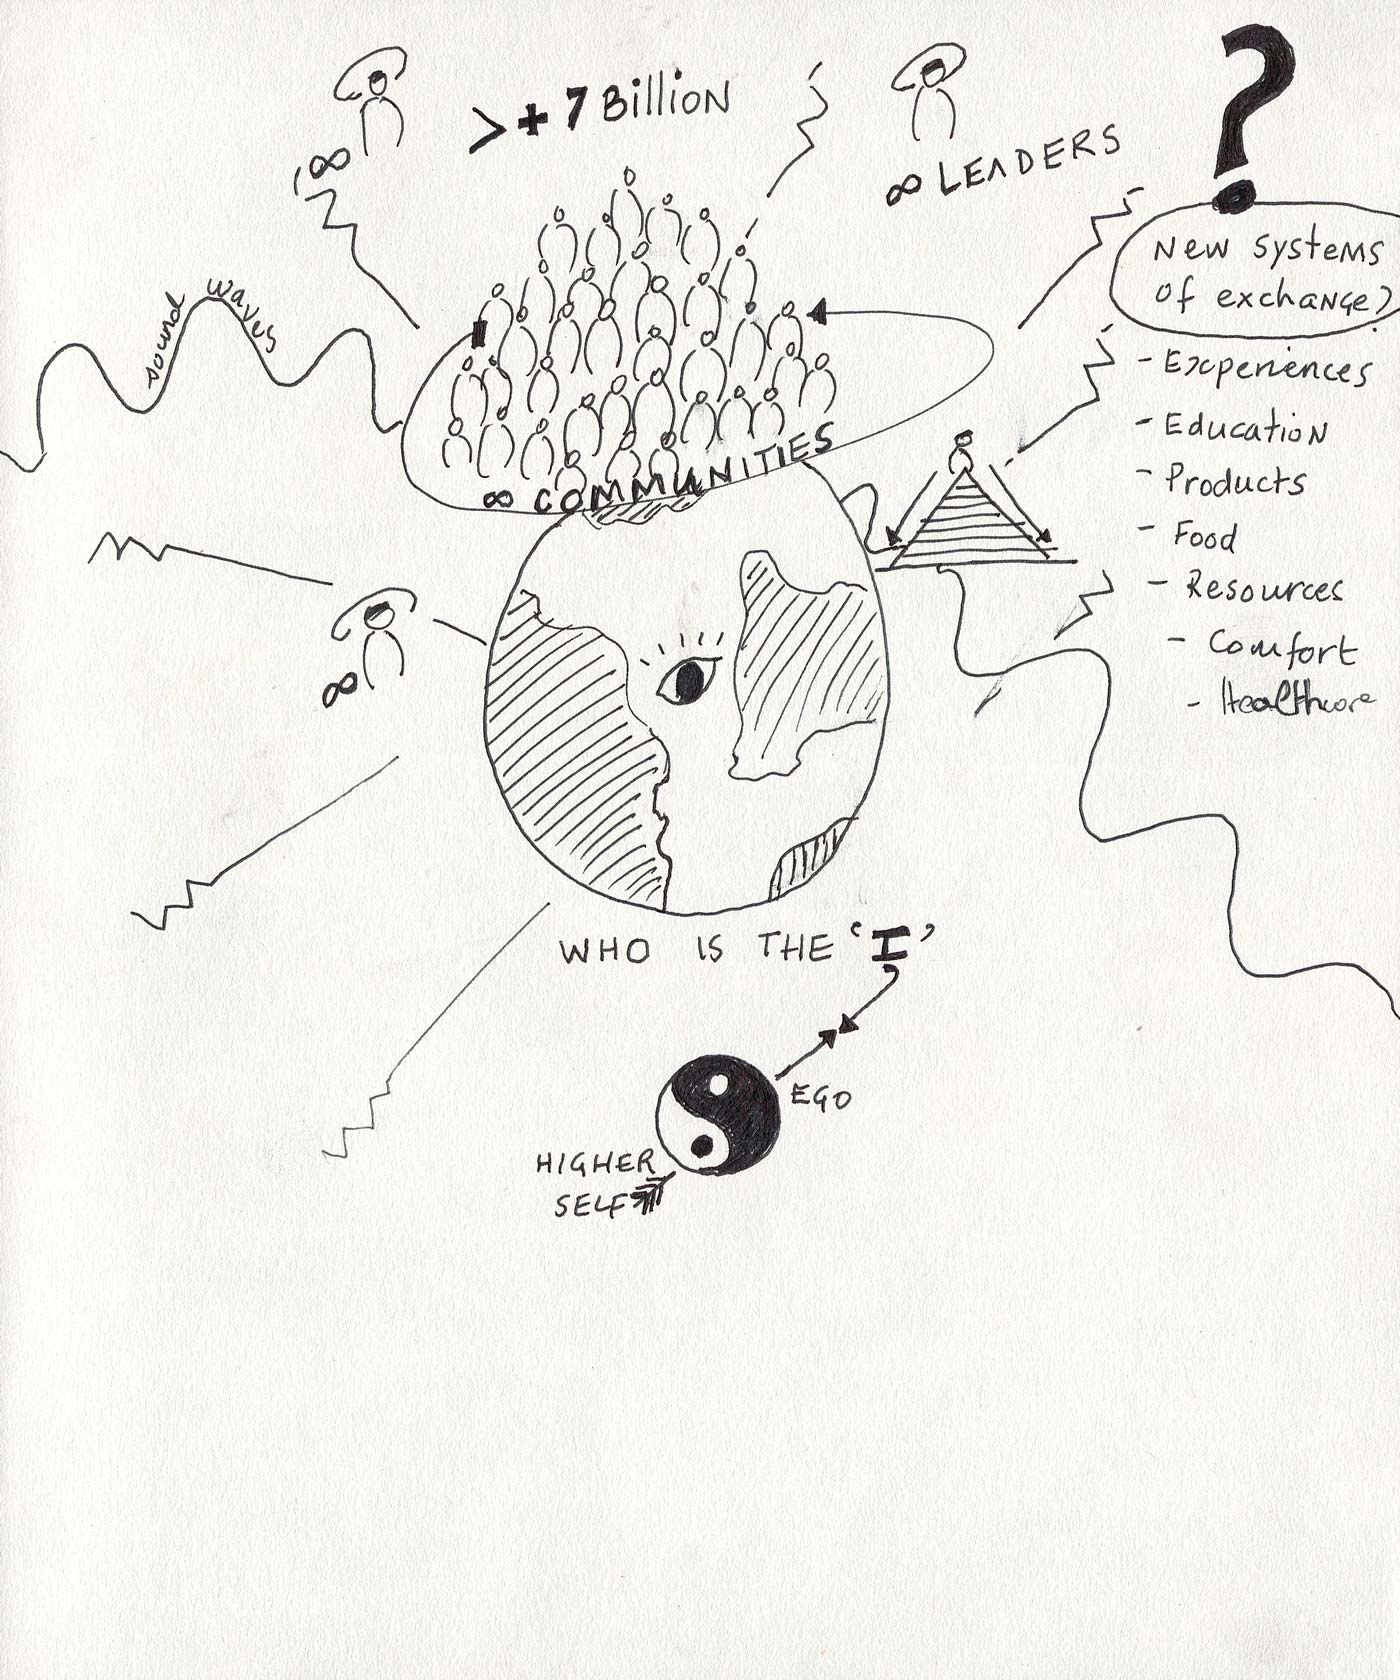 > + 7 Billion
∞
∞ LEADERS
?
New systems
of exchange?
sound waves
- Experiences
- Education
- Products
- Food
- Resources
- Comfort
- Healthcare
∞ COMMUNITIES
∞
WHO IS THE 'I'
EGO
HIGHER
SELF